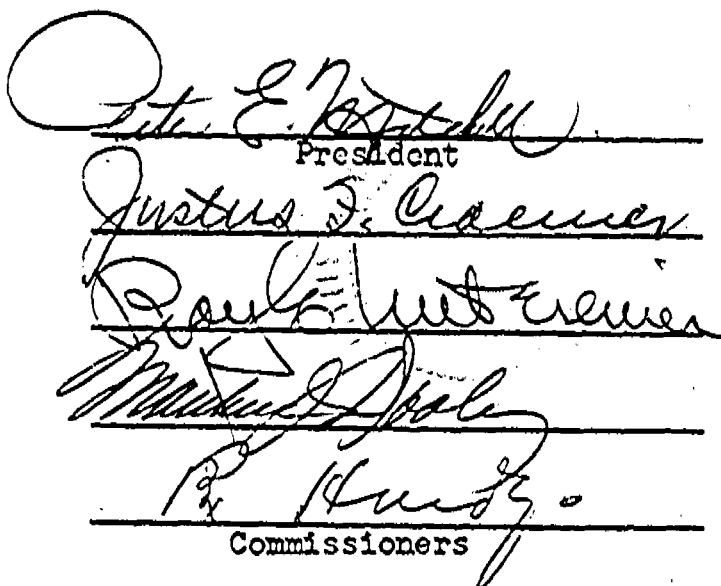 Peter E. Mitchell
President
Justus F. Craemer
Untereiner
Dooley
Hardy
Commissioners